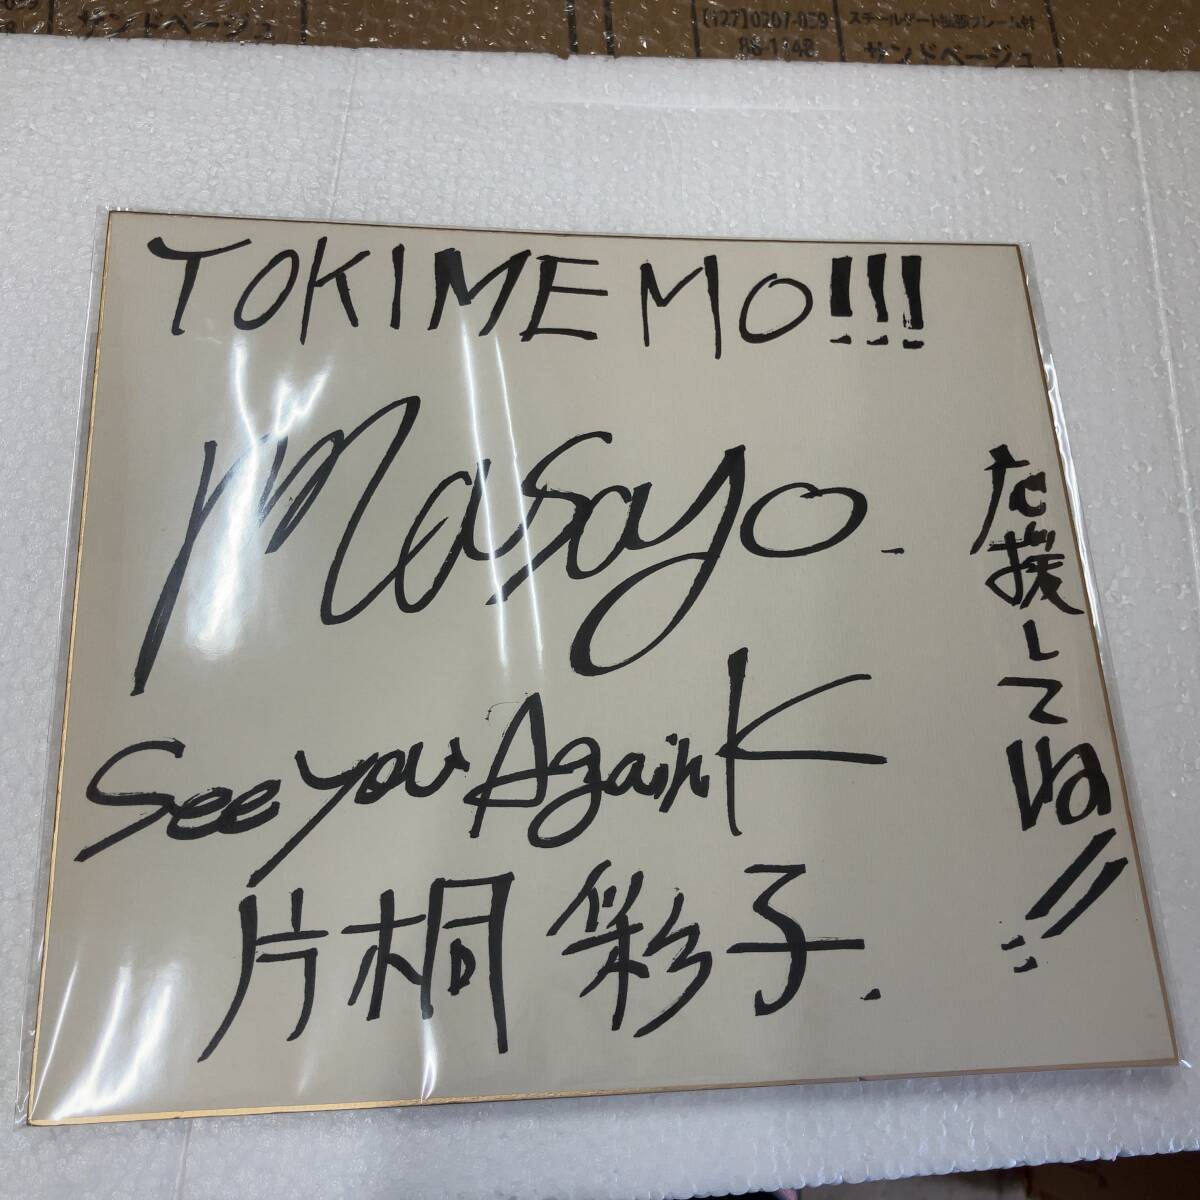 サンドベージュ
[127]0207-059
88-1148
スチールゲート拡張フレーム付
サンドベージュ
TOKIMEMO!!!
Masayo.
See you Again K
片桐 彩子.
応援してね!!